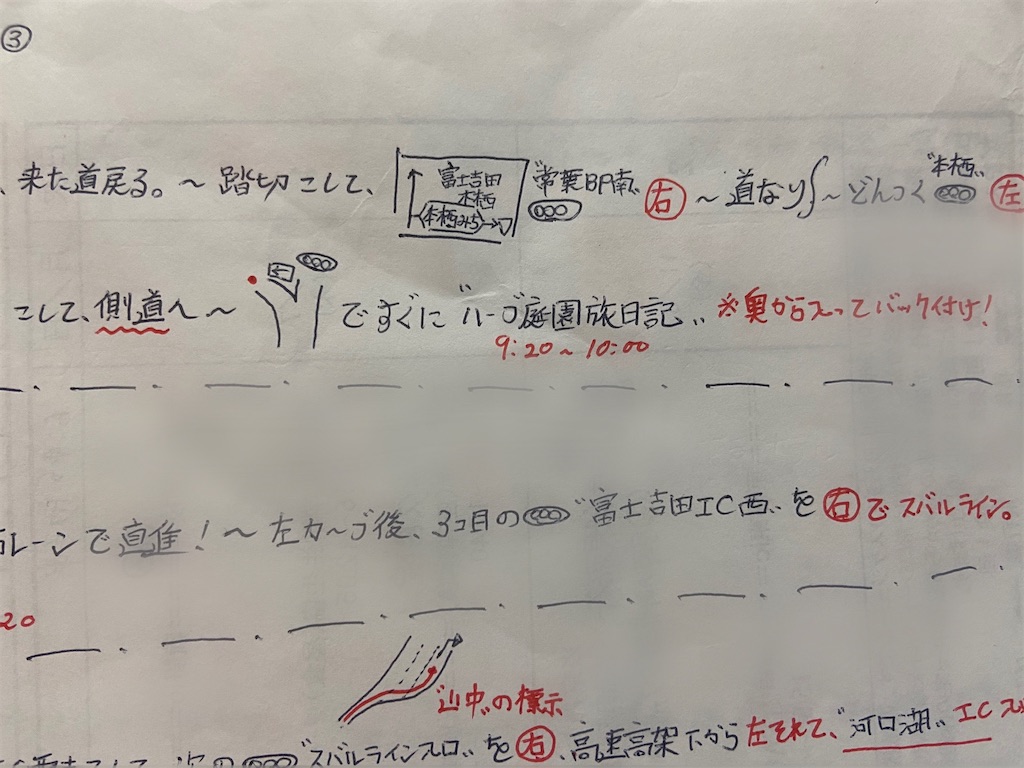 ③
、来た道戻る。〜踏切こして、
富士吉田
本栖
本栖みち
"常葉BP南"
右 〜道なり〜どんつく
"本栖"
左
こして、側道へ〜
ですぐに "ハーブ庭園旅日記" ※奥から入ってバック付け!
9:20〜10:00
レーンで直進!〜左カーブ後、3コ目の "富士吉田IC西" を 右 でスバルライン。
20
"山中"の標示
次の "スバルライン入口" を 右、高速高架下から左それて、"河口湖" IC